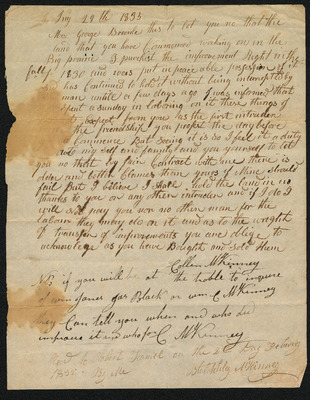 29th 1833
Mr George this to let you no that the
land that you have Commenced making on in the
Big prairie I purchd the improvement Right in the
fall 1830 and was put in peaceable possession of it
has Continued to hold it without being interrupted by
man untill a few days ago I was informed that
spent a Sunday in Laboring on it these things of
to expect from you as the port intruder
the friendship you profest the day before
Commence But seeing it is so I feel it a duty
my self and family and you yourself to let
you no that by fair Contract better time there is
older and better Claimes than yours if mine should
fail But I believe I shall hold the land no
thanks to you or any other intruder and if I do I
will pay you nor no other man for the
Labour they may do on it and as to the weight
of Transfer of improvements you are oblige to
acknowledge as you have Bought and sold them
McKinney
NB if you will be at the trouble to inquire
of James Black or wm C McKinney
they Can tell you when and who did
improve it and who for C McKinney
on the 2d Day
1833 By Me
McKinney